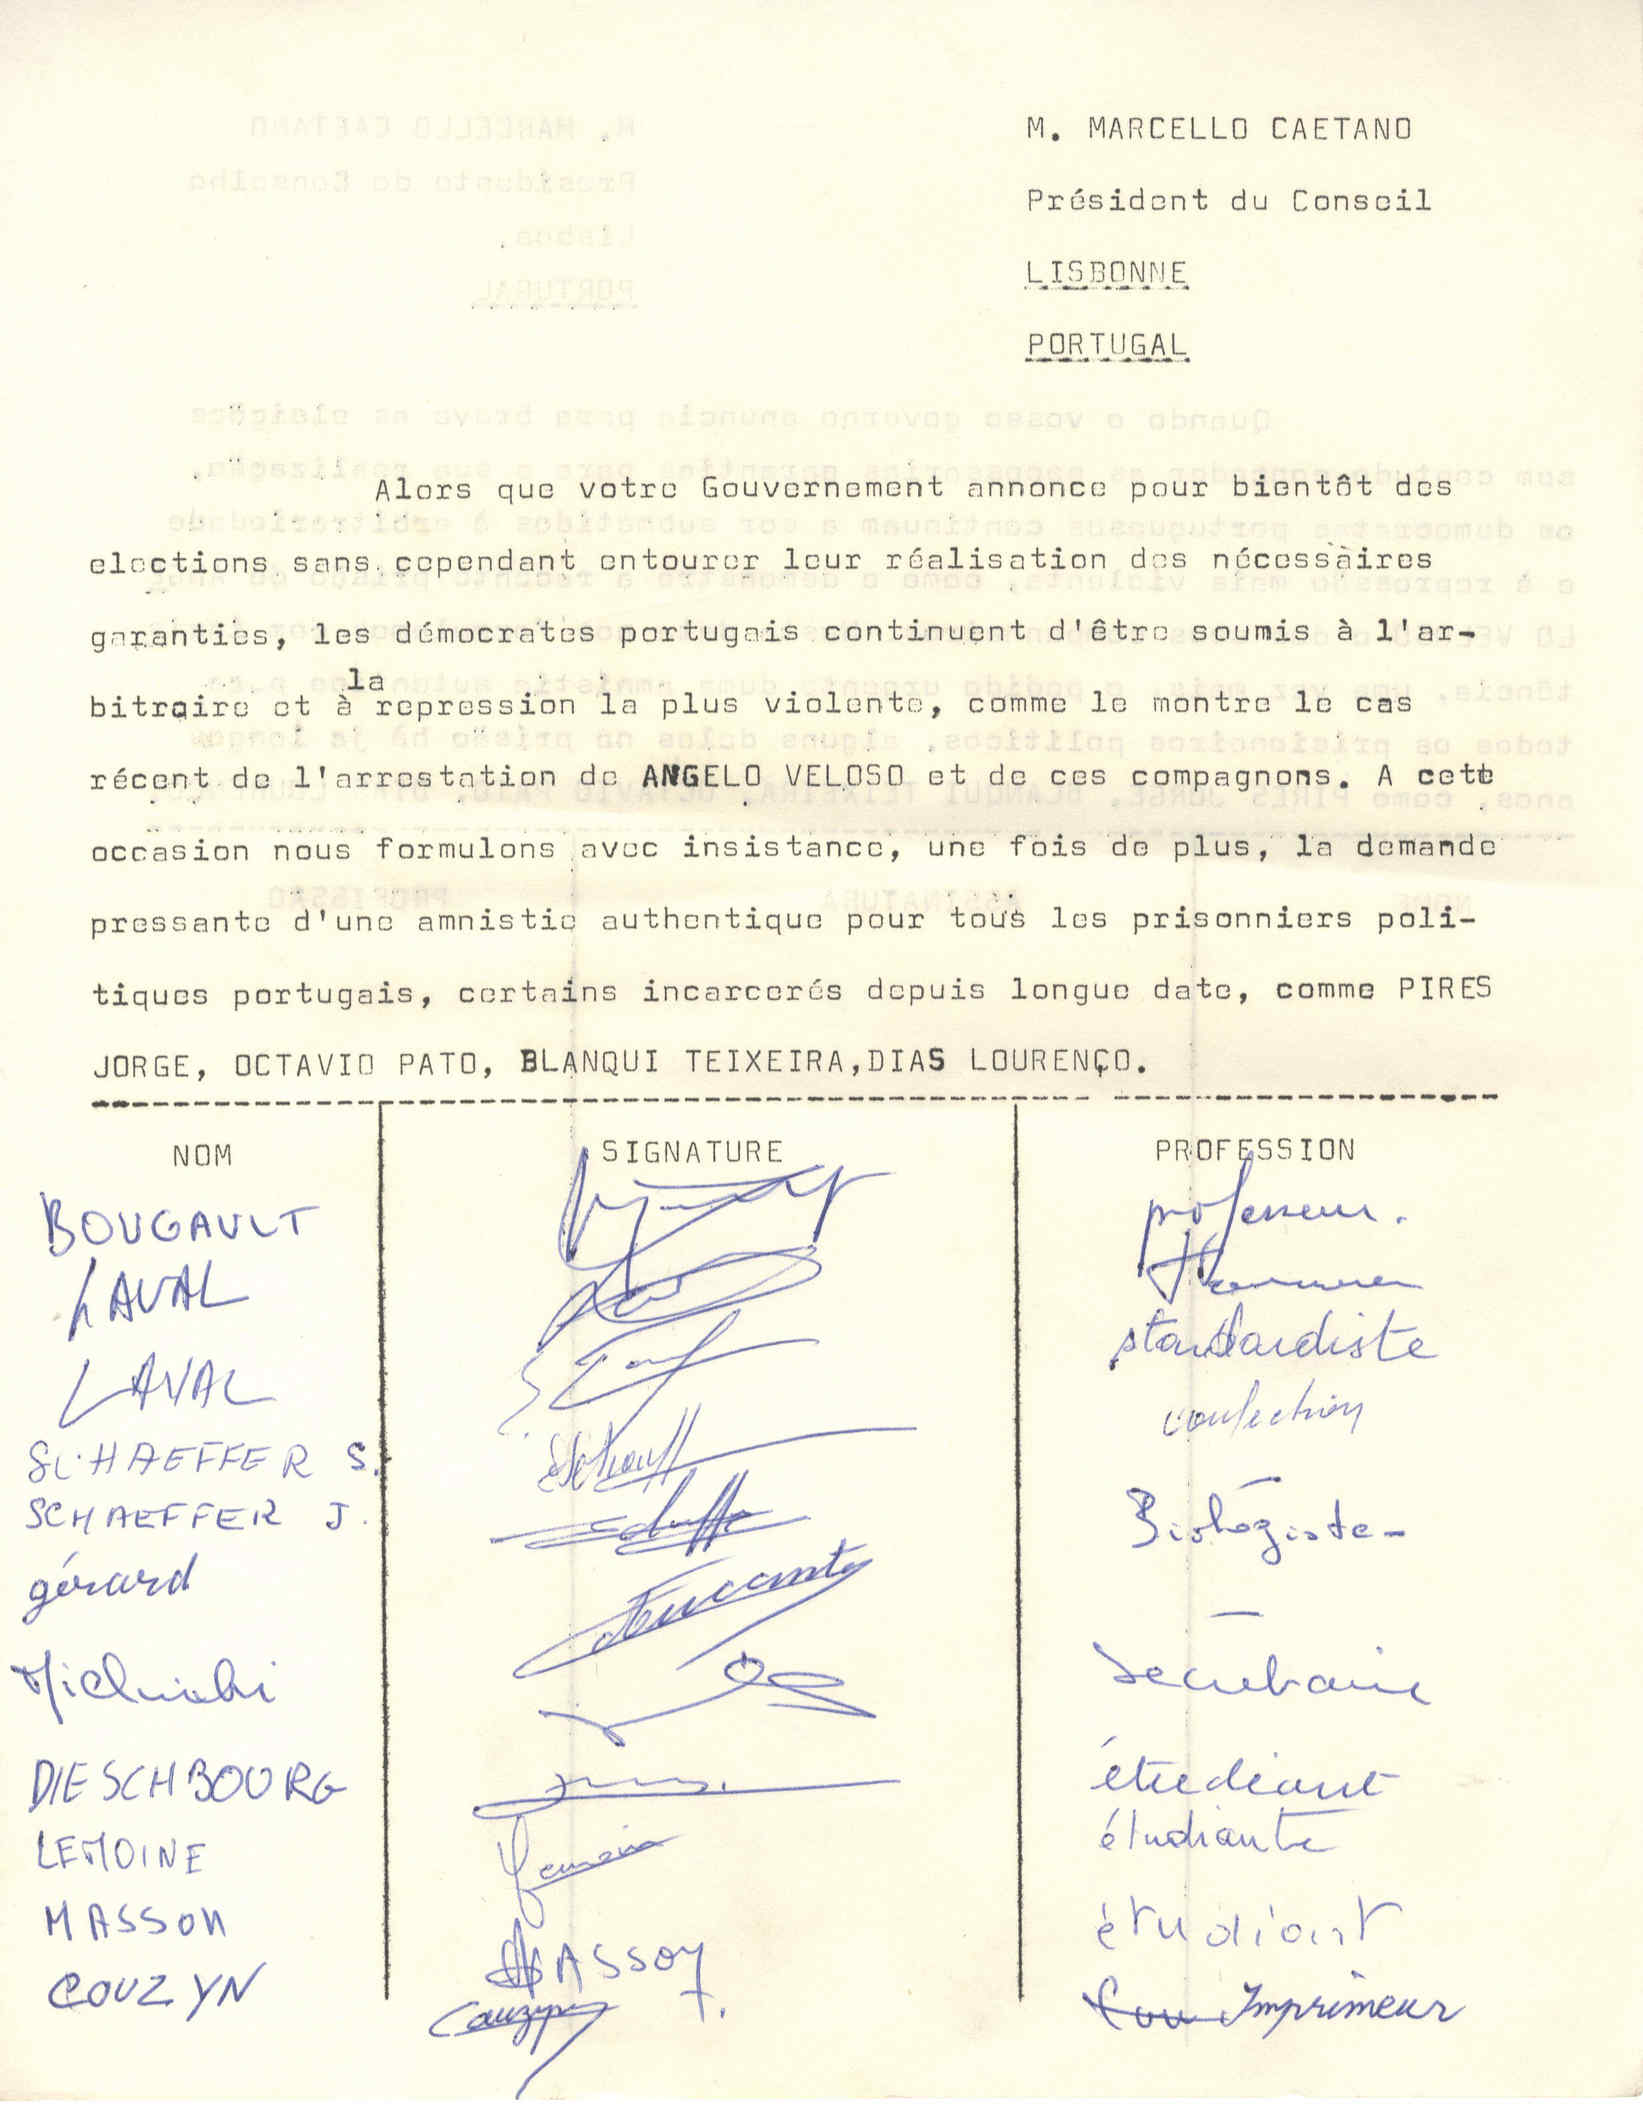 M. MARCELLO CAETANO
Président du Conseil
LISBONNE
PORTUGAL
Alors que votre Gouvernement annonce pour bientôt des
elections sans cependant entourer leur réalisation des nécessàires
garanties, les démocrates portugais continuent d'être soumis à l'ar-
la
bitraire et à repression la plus violente, comme le montre le cas
récent de l'arrestation de ANGELO VELOSO et de ces compagnons. A cett
occasion nous formulons avec insistance, une fois de plus, la demande
pressante d'une amnistie authentique pour tous les prisonniers poli-
tiques portugais, certains incarcerés depuis longue date, comme PIRES
JORGE, OCTAVIO PATO, BLANQUI TEIXEIRA,DIAS LOURENÇO.
NOM SIGNATURE PROFESSION
BOUGAULT professeur.
LAVAL
LAVAL standardiste
SCHAEFFER S. confection
SCHAEFFER J. Biologiste-
gérard —
secrétaire
DIESCHBOURG étudiant
LEMOINE Lemoine étudiante
MASSON MASSON étudiant
COUZYN Couzyn Imprimeur